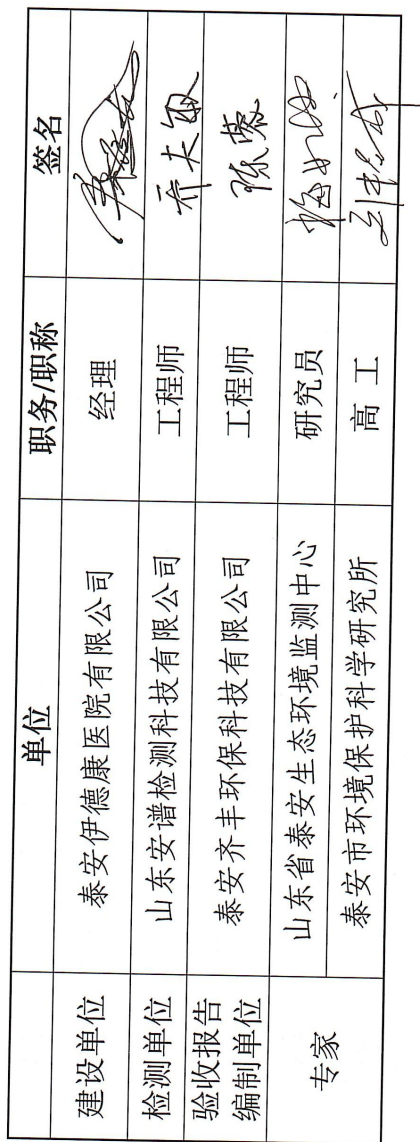 单位 职务/职称 签名
建设单位 泰安伊德康医院有限公司 经理
检测单位 山东安谱检测科技有限公司 工程师 乔夫敏
验收报告
编制单位 泰安齐丰环保科技有限公司 工程师 陈蒙
专家 山东省泰安生态环境监测中心 研究员
泰安市环境保护科学研究所 高工